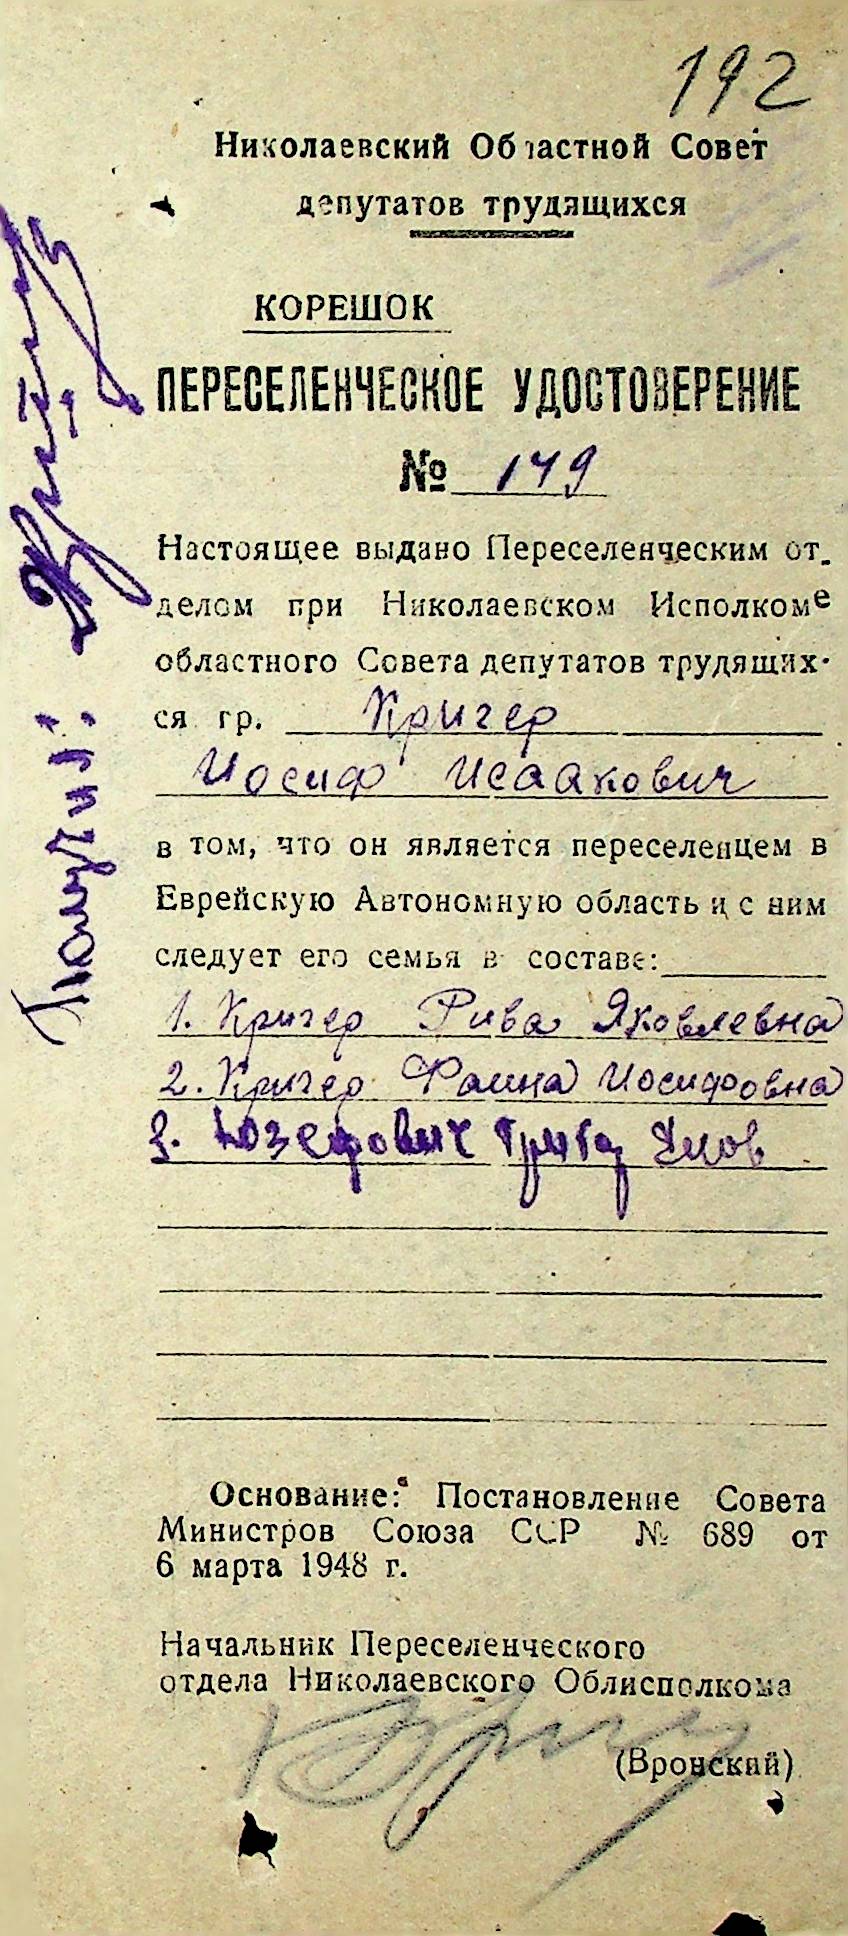 192
Николаевский Областной Совет
депутатов трудящихся
КОРЕШОК
ПЕРЕСЕЛЕНЧЕСКОЕ УДОСТОВЕРЕНИЕ
№ 149
Настоящее выдано Переселенческим от-
делом при Николаевском Исполкоме
областного Совета депутатов трудящих-
ся гр. Кригер
Иосиф Исаакович
в том, что он является переселенцем в
Еврейскую Автономную область и с ним
следует его семья в составе:
1. Кригер Рива Яковлевна
2. Кригер Фаина Иосифовна
3. Юзефович
Основание: Постановление Совета
Министров Союза ССР № 689 от
6 марта 1948 г.
Начальник Переселенческого
отдела Николаевского Облисполкома
(Вронский)
Получил: